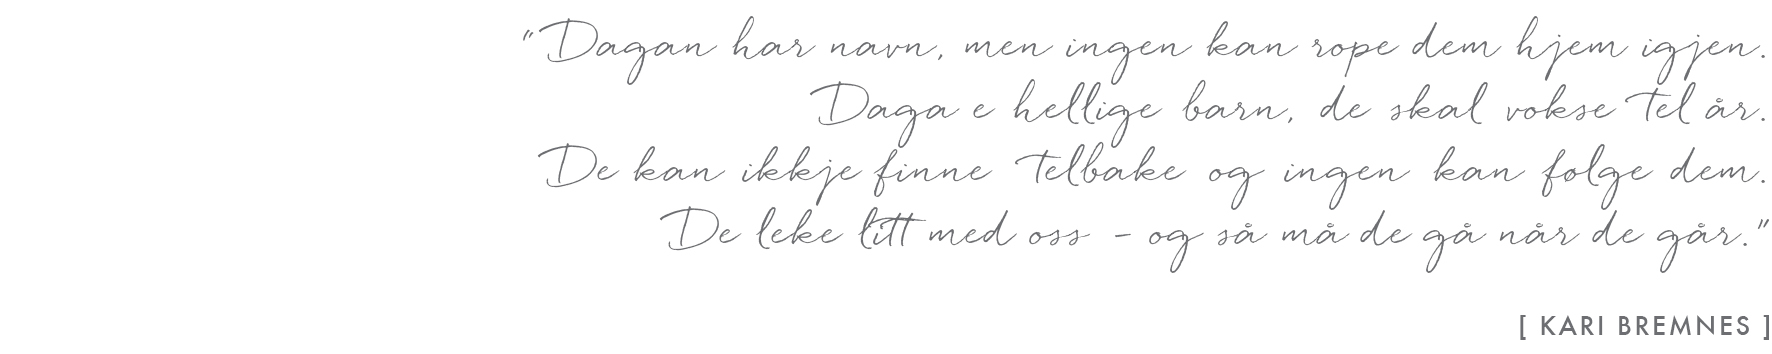 "Dagan har navn, men ingen kan rope dem hjem igjen.
Daga e hellige barn, de skal vokse tel år.
De kan ikkje finne telbake og ingen kan følge dem.
De leke litt med oss - og så må de gå når de går."
[ KARI BREMNES ]